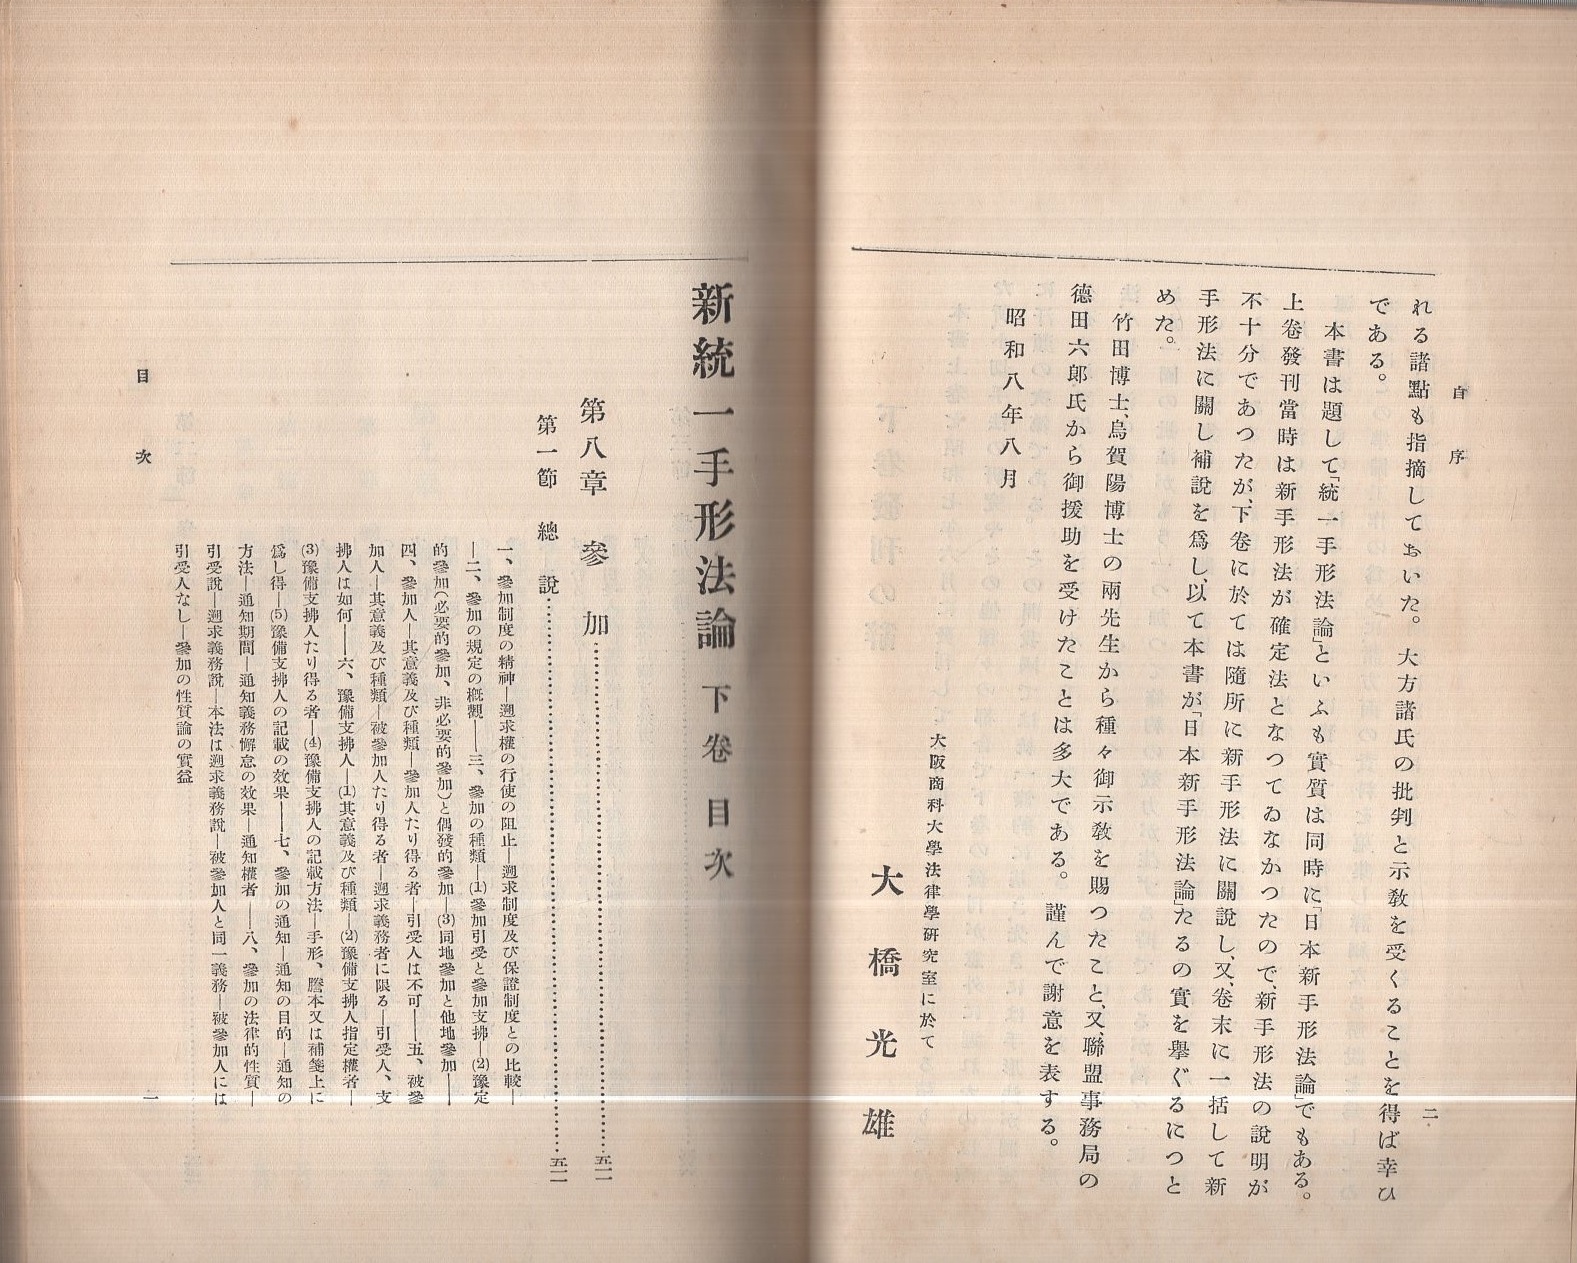 自序
二
れる諸點も指摘しておいた。大方諸氏の批判と示敎を受くることを得ば幸ひ
である。
本書は題して「統一手形法論」といふも實質は同時に「日本新手形法論」でもある。
上卷發刊當時は新手形法が確定法となつてゐなかつたので、新手形法の說明が
不十分であつたが、下卷に於ては隨所に新手形法に關說し、又、卷末に一括して新
手形法に關し補說を爲し、以て本書が「日本新手形法論」たるの實を擧ぐるにつと
めた。
竹田博士、烏賀陽博士の兩先生から種々御示敎を賜つたこと、又、聯盟事務局の
德田六郞氏から御援助を受けたことは多大である。謹んで謝意を表する。
昭和八年八月
大阪商科大學法律學硏究室に於て
大橋光雄
新統一手形法論 下卷 目次
第八章 參加……五一一
第一節 總說……五一一
一、參加制度の精神―遡求權の行使の阻止―遡求制度及び保證制度との比較―
―二、參加の規定の槪觀――三、參加の種類―(1)參加引受と參加支拂―(2)豫定
的參加(必要的參加、非必要的參加)と偶發的參加―(3)同地參加と他地參加――
四、參加人―其意義及び種類―參加人たり得る者―引受人は不可――五、被參
加人―其意義及び種類―被參加人たり得る者―遡求義務者に限る―引受人、支
拂人は如何――六、豫備支拂人―(1)其意義及び種類―(2)豫備支拂人指定權者―
(3)豫備支拂人たり得る者―(4)豫備支拂人の記載方法―手形、謄本又は補箋上に
爲し得―(5)豫備支拂人の記載の效果――七、參加の通知―通知の目的―通知の
方法―通知期間―通知義務懈怠の效果―通知權者――八、參加の法律的性質―
引受說―遡求義務說―本法は遡求義務說―被參加人と同一義務―被參加人には
引受人なし―參加の性質論の實益
目次
一